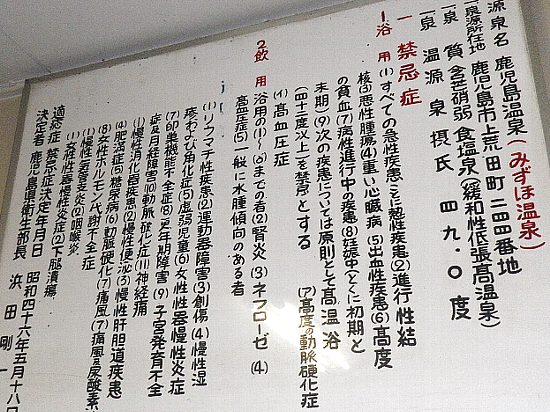 源泉名 鹿児島温泉(みずほ温泉)
泉源所在地 鹿児島市上荒田町二四四番地
一泉質 含芒硝弱食塩泉(緩和性低張高温泉)
一泉温 源泉 摂氏 四九.0度
一禁忌症
1浴用 (1)すべての急性疾患(ことに熱性疾患)(2)進行性結
核(3)悪性腫瘍(4)重い心臓病(5)出血性疾患(6)高度
の貧血(7)病性進行中の疾患(8)妊娠中(とくに初期と
末期)(9)次の疾患については原則として高温浴
(四十二度以上)を禁忌とする
(イ)高血圧症 (ア)高度の動脈硬化症
2飲用 浴用の(1)〜(6)までの者(2)腎炎(3)ネフローゼ(4)
高血圧症(5)一般に水腫傾向のある者
(1)リウマチ性疾患(2)運動器障害(3)創傷(4)慢性湿
疹および角化症(5)虚弱児童(6)女性性器慢性炎症
(7)卵巣機能不全症(8)更年期障害(9)子宮発育不全
症及月経障害(10)動脈硬化症(11)神経痛
(1)慢性消化器疾患(2)慢性便泌(3)慢性肝胆道疾患
(4)肥満症(5)糖尿病(6)動脈硬化(7)痛風(7)痛風及尿酸素
(8)女性ホルモン代謝不全症
(1)慢性気管支炎(2)咽喉炎
(1)女性性器慢性炎症(2)下腿潰瘍
適応症 禁忌症決定年月日 昭和四十六年五月十八日
決定者 鹿児島県衛生部長 浜田剛一